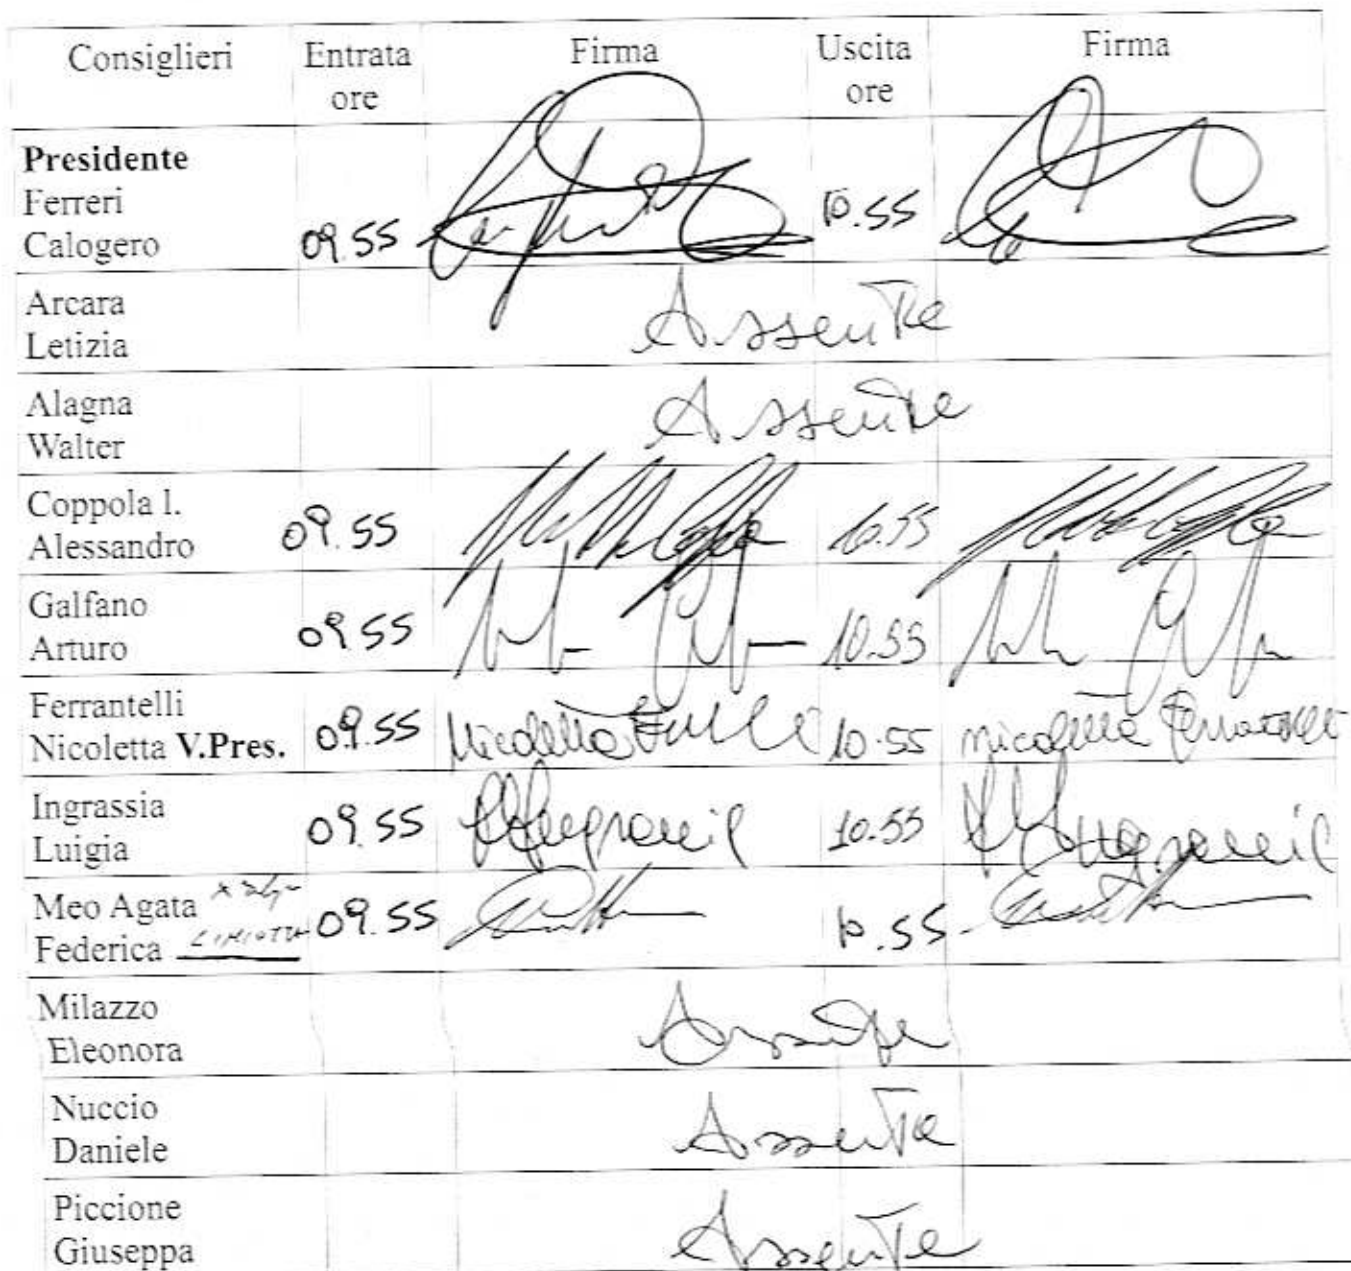 Consiglieri Entrata Firma Uscita Firma
ore ore
Presidente
Ferreri
Calogero 09.55 10.55
Arcara
Letizia Assente
Alagna
Walter Assente
Coppola l.
Alessandro 09.55 10.55
Galfano
Arturo 09.55 10.55
Ferrantelli
Nicoletta V.Pres. 09.55 Nicoletta 10.55 Nicoletta Ferrantelli
Ingrassia
Luigia 09.55 10.55
Meo Agata
Federica 09.55 10.55
Milazzo
Eleonora Assente
Nuccio
Daniele Assente
Piccione
Giuseppa Assente